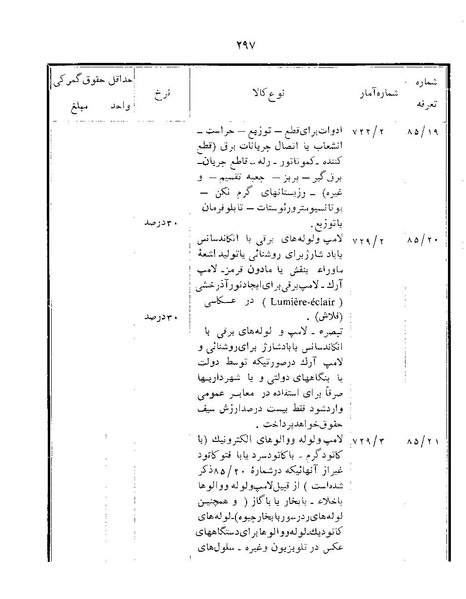 ۲۹۷
شماره تعرفه شماره آمار نوع کالا نرخ حداقل حقوق گمرکی واحد مبلغ
۸۵/۱۹ ۷۲۲/۲ ادوات برای قطع – توزیع – حراست –
انشعاب یا اتصال جریانات برق (قطع
کننده ـ کموتاتور ـ رله ـ قاطع جریان ـ
برق گیر – پریز – جعبه تقسیم – و
غیره) – رزیستانهای گرم نکن –
پوتانسیومتر و رئوستات – تابلو فرمان
یا توزیع. ۳۰درصد
۸۵/۲۰ ۷۲۹/۲ لامپ و لوله‌های برقی با انکاندسانس
یا باد شارژ برای روشنائی یا تولید اشعهٔ
ماوراء بنفش یا مادون قرمز ـ لامپ
آرك ـ لامپ برقی برای ایجاد نور آذرخشی
(Lumière-éclair) در عکاسی
(فلاش). ۳۰درصد
تبصره ـ لامپ و لوله‌های برقی با
انکاندسانس یا بادشارژ برای روشنائی و
لامپ آرك درصورتیکه توسط دولت
یا بنگاههای دولتی و یا شهرداریها
صرفاً برای استفاده در معابر عمومی
وارد شود فقط بیست درصد ارزش سیف
حقوق خواهد پرداخت.
۸۵/۲۱ ۷۲۹/۳ لامپ و لوله و والوهای الکترونیك (با
کاتود گرم ـ با کاتود سرد یا با فتوکاتود
غیر از آنهائیکه در شمارهٔ ۸۵/۲۰ ذکر
شده است) از قبیل لامپ و لوله و والوها
با خلاء ـ با بخار یا با گاز (و همچنین
لوله‌های ردرسور با بخار جیوه) ـ لوله‌های
کاتودیك ـ لوله و والوها برای دستگاههای
عکس در تلویزیون و غیره ـ سلول‌های